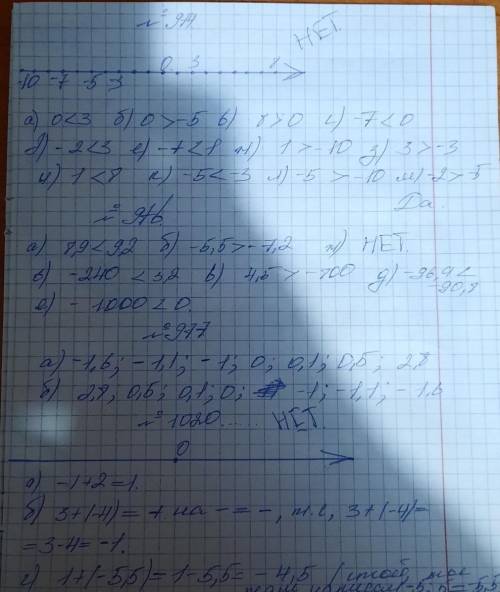 № 974.
НЕТ.
0 3 8
-10 -7 -5 -3
а) 0<3 б) 0>-5 в) 8>0 г) -7<0
д) -2<3 е) -7<8 ж) 1>-10 з) 3>-3
и) 1<8 к) -5<-3 л) -5>-10 м) -2>-5
Да.
№ 976
а) 8,9<9,2 б) -6,5>-7,2 ж) НЕТ.
в) -240<3,2 в) 4,5>-100 д) -96,9<
-90,3
е) -1000<0.
№ 977
а) -1,6; -1,1; -1; 0; 0,1; 0,5; 2,8
б) 2,8; 0,5; 0,1; 0; -1; -1,1; -1,6
№ 1020..... НЕТ.
0
а) -1+2=1.
б) 3+(-4)= + на - = -, т.е, 3+(-4)=
=3-4=-1.
г) 1+(-5,5)=1-5,5=-4,5